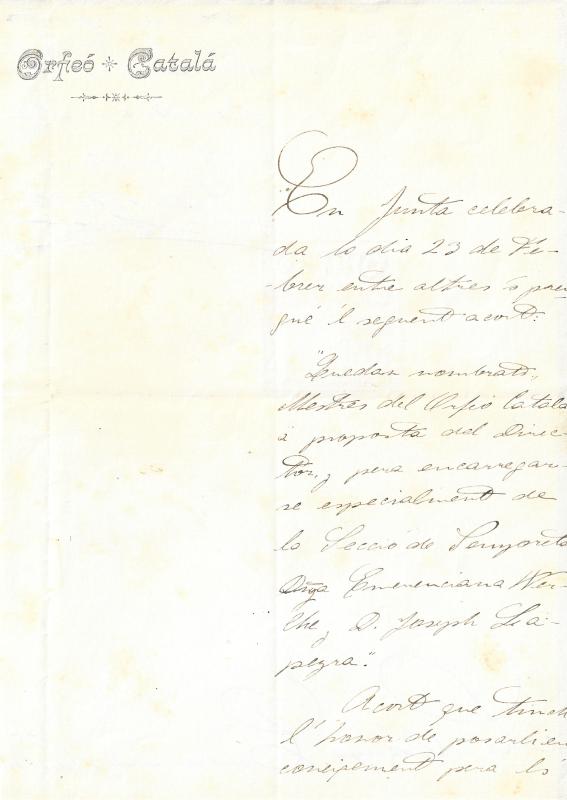 Orfeó Catalá
En Junta celebra-
da lo dia 23 de Fe-
-brer entre altres s' pren
gué 'l seguent acort:
"Quedan nombrats,
Mestres del Orfeó Catalá
á proposta del Direc-
tor, y pera encarregar-
se especialment de
la Secció de Senyoretas
Dña Emerenciana Wer-
lhe, y D. Joseph La-
peyra".
Acort que tinch
l' honor de posarli en
coneixement pera ls